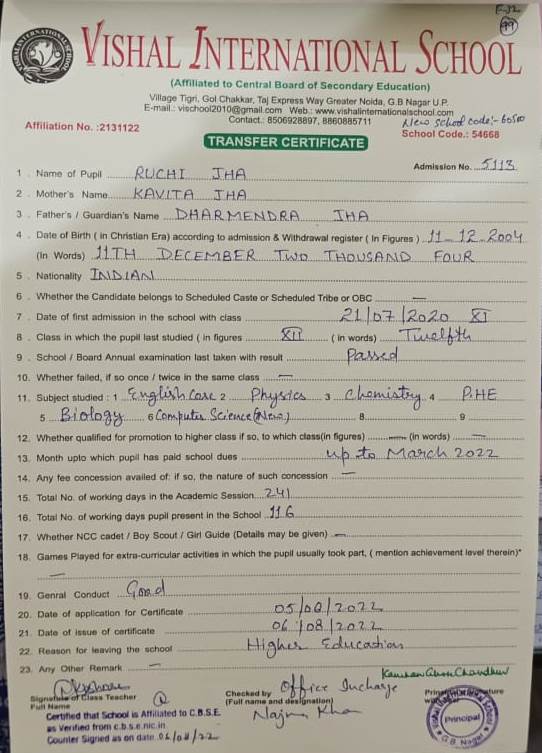 99
VISHAL INTERNATIONAL SCHOOL
VISHAL INTERNATIONAL SCHOOL
(Affiliated to Central Board of Secondary Education)
Village Tigri, Gol Chakkar, Taj Express Way Greater Noida, G.B Nagar U.P.
E-mail.: vischool2010@gmail.com Web.: www.vishalinternationalschool.com
Contact.: 8506928897, 8860885711
New School code:- 60500
Affiliation No. :2131122
School Code.: 54668
TRANSFER CERTIFICATE
Admission No. 5113
1 . Name of Pupil RUCHI JHA
2 . Mother's Name KAVITA JHA
3 . Father's / Guardian's Name DHARMENDRA JHA
4 . Date of Birth ( in Christian Era) according to admission & Withdrawal register ( In Figures ) 11-12-2004
(In Words) 11TH DECEMBER TWO THOUSAND FOUR
5 . Nationality INDIAN
6 . Whether the Candidate belongs to Scheduled Caste or Scheduled Tribe or OBC —
7 . Date of first admission in the school with class 21/07/2020 XI
8 . Class in which the pupil last studied ( in figures XII ( in words) Twelfth
9 . School / Board Annual examination last taken with result Passed
10. Whether failed, if so once / twice in the same class —
11. Subject studied : 1 English Core 2 Physics 3 Chemistry 4 P.HE
5 Biology 6 Computer Science (New) 8 9
12. Whether qualified for promotion to higher class if so, to which class(in figures) — (in words) —
13. Month upto which pupil has paid school dues up to March 2022
14. Any fee concession availed of: if so, the nature of such concession —
15. Total No. of working days in the Academic Session 241
16. Total No. of working days pupil present in the School 116
17. Whether NCC cadet / Boy Scout / Girl Guide (Details may be given) —
18. Games Played for extra-curricular activities in which the pupil usually took part, ( mention achievement level therein)*
—
19. Genral Conduct Good
20. Date of application for Certificate 05/08/2022
21. Date of issue of certificate 06/08/2022
22. Reason for leaving the school Higher Education
23. Any Other Remark —
Signature of Class Teacher
Full Name
Checked by Office Incharge
(Full name and designation) Najma Khan
Certified that School is Affiliated to C.B.S.E.
as Verified from c.b.s.e.nic.in
Counter Signed as on date 06/08/22
Principal
G.B. Nagar